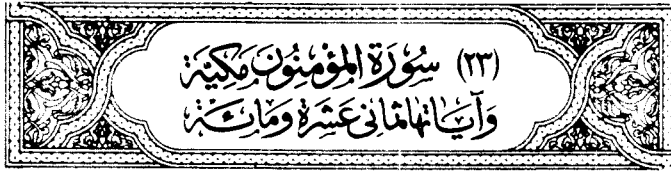 (٢٣) سُورَة المؤمنُون مَكيّة
وَآيَاتهَا ثمانى عَشرَة وَمائَة